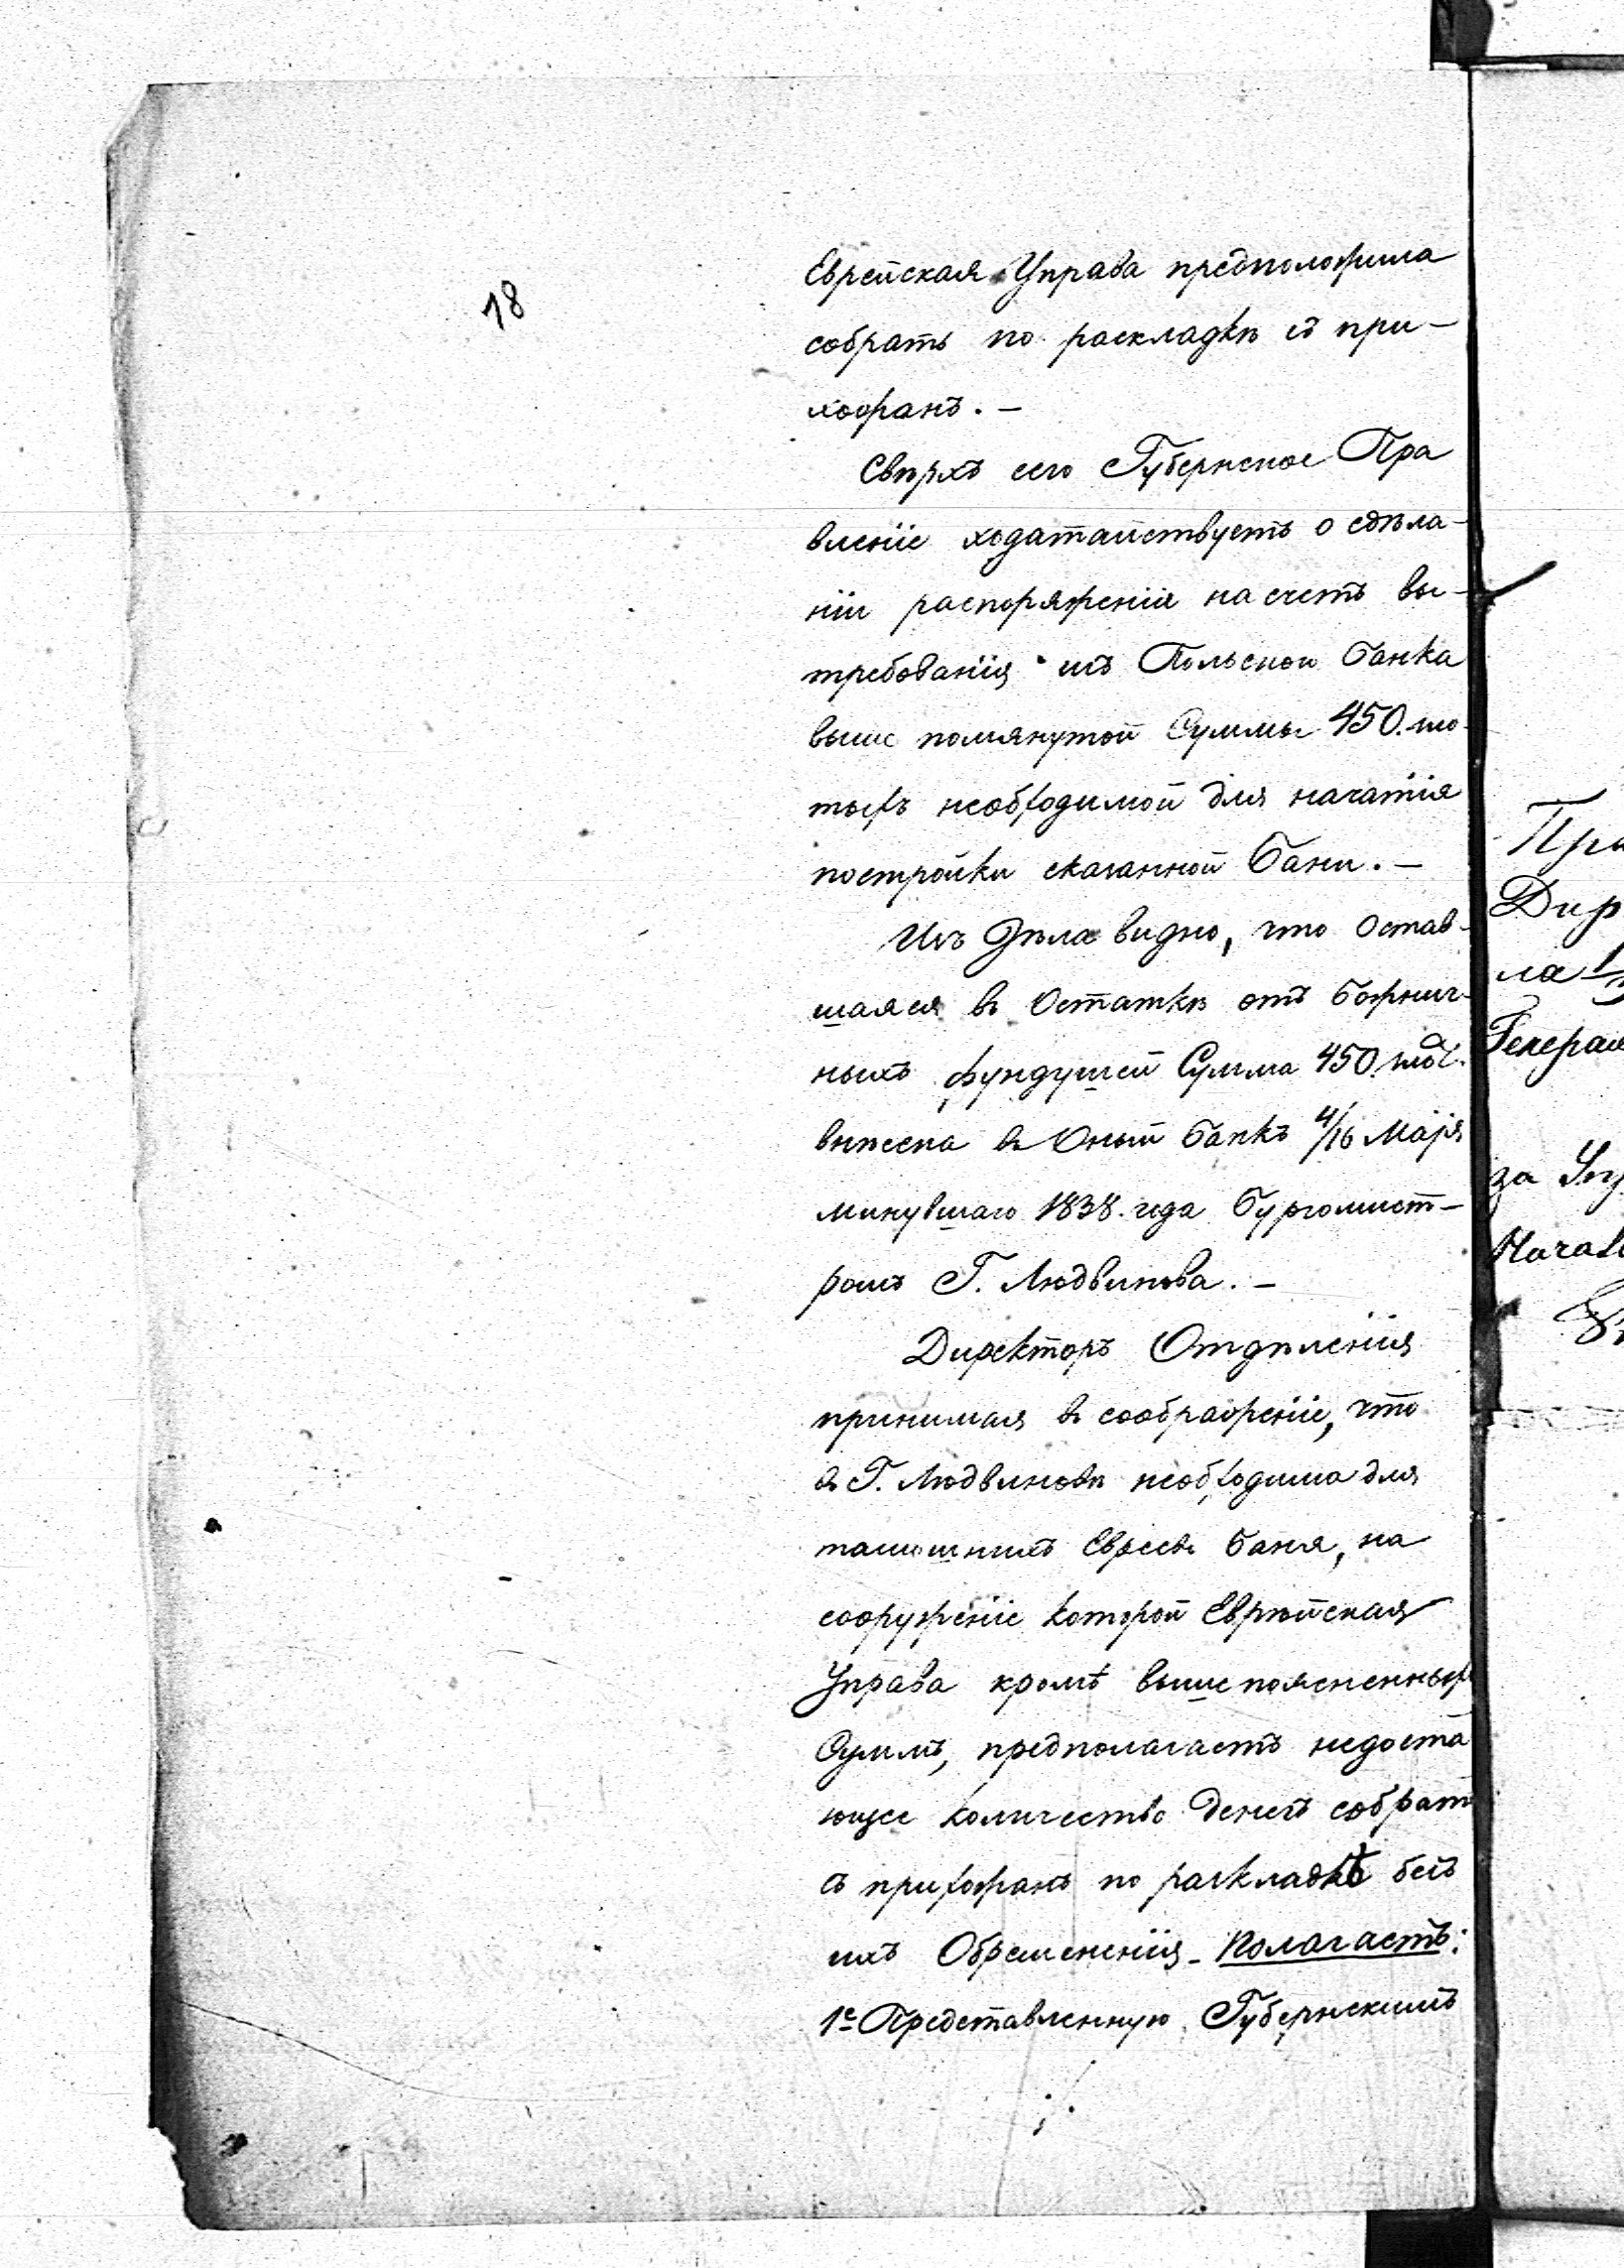 18
Еврейская Управа предположила
собрать по раскладкѣ съ при-
хожанъ. -
Сверхъ сего Губернское Пра
вленіе ходатайствуетъ о сдѣла-
ніи распоряженія насчетъ вы-
требованія изъ Польскои Банка
выше помянутой Суммы 450. зло-
тыхъ необходимой для начатія
постройки сказанной Бани. -
Изъ Дѣла видно, что Остав-
шаяся въ Остаткѣ отъ Божнич-
ныхъ фундушей Сумма 450. злот.
внесена въ Оный Банкъ 4/16 Маія
минувшаго 1838. года Бургомист-
ромъ Г. Людвинова. -
Директоръ Отдѣленія
принимая въ соображеніе, что
въ Г. Людвиновѣ необходима для
тамошнихъ Евреевъ Баня, на
сооруженіе которой Еврейская
Управа кромѣ вышепоясненных
Суммъ, предполагаетъ недоста
ющее количество денегъ собрат
съ прихожанъ по раскладкѣ безъ
ихъ Обремененія - Полагаетъ:
1е Представленную Губернскимъ
./.
Пра
Дир
ла
Генерал
за Упр
Начал